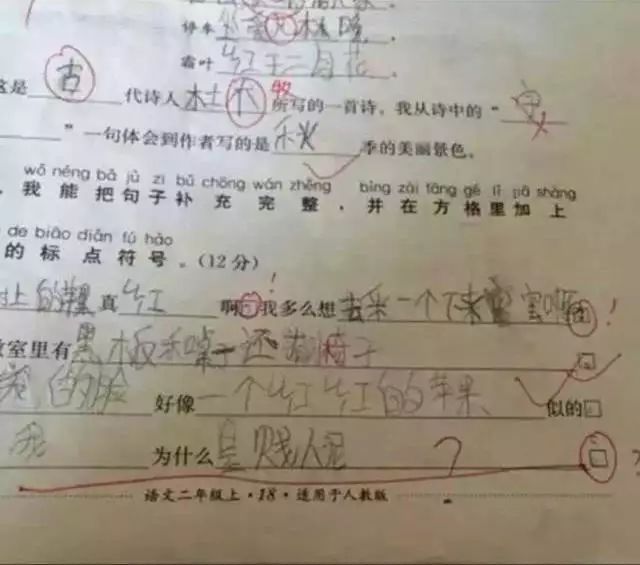 停车
霜叶红于二月花。
这是 古 代诗人 杜 牧 所写的一首诗。我从诗中的“
”一句体会到作者写的是 秋 季的美丽景色。
wǒ néng bǎ jù zi bǔ chōng wán zhěng bìng zài fāng gé lǐ jiā shàng
，我能把句子补充完整，并在方格里加上
de biāo diǎn fú hào
的标点符号。(12分)
上的苹果真 红 啊！我多么想 去采一个下来 ！
教室里有 黑板和桌子还有椅子
我的脸 好像 一个红红的苹果 似的□
我 为什么 是贱人呢 ？□
语文二年级上·18·适用于人教版